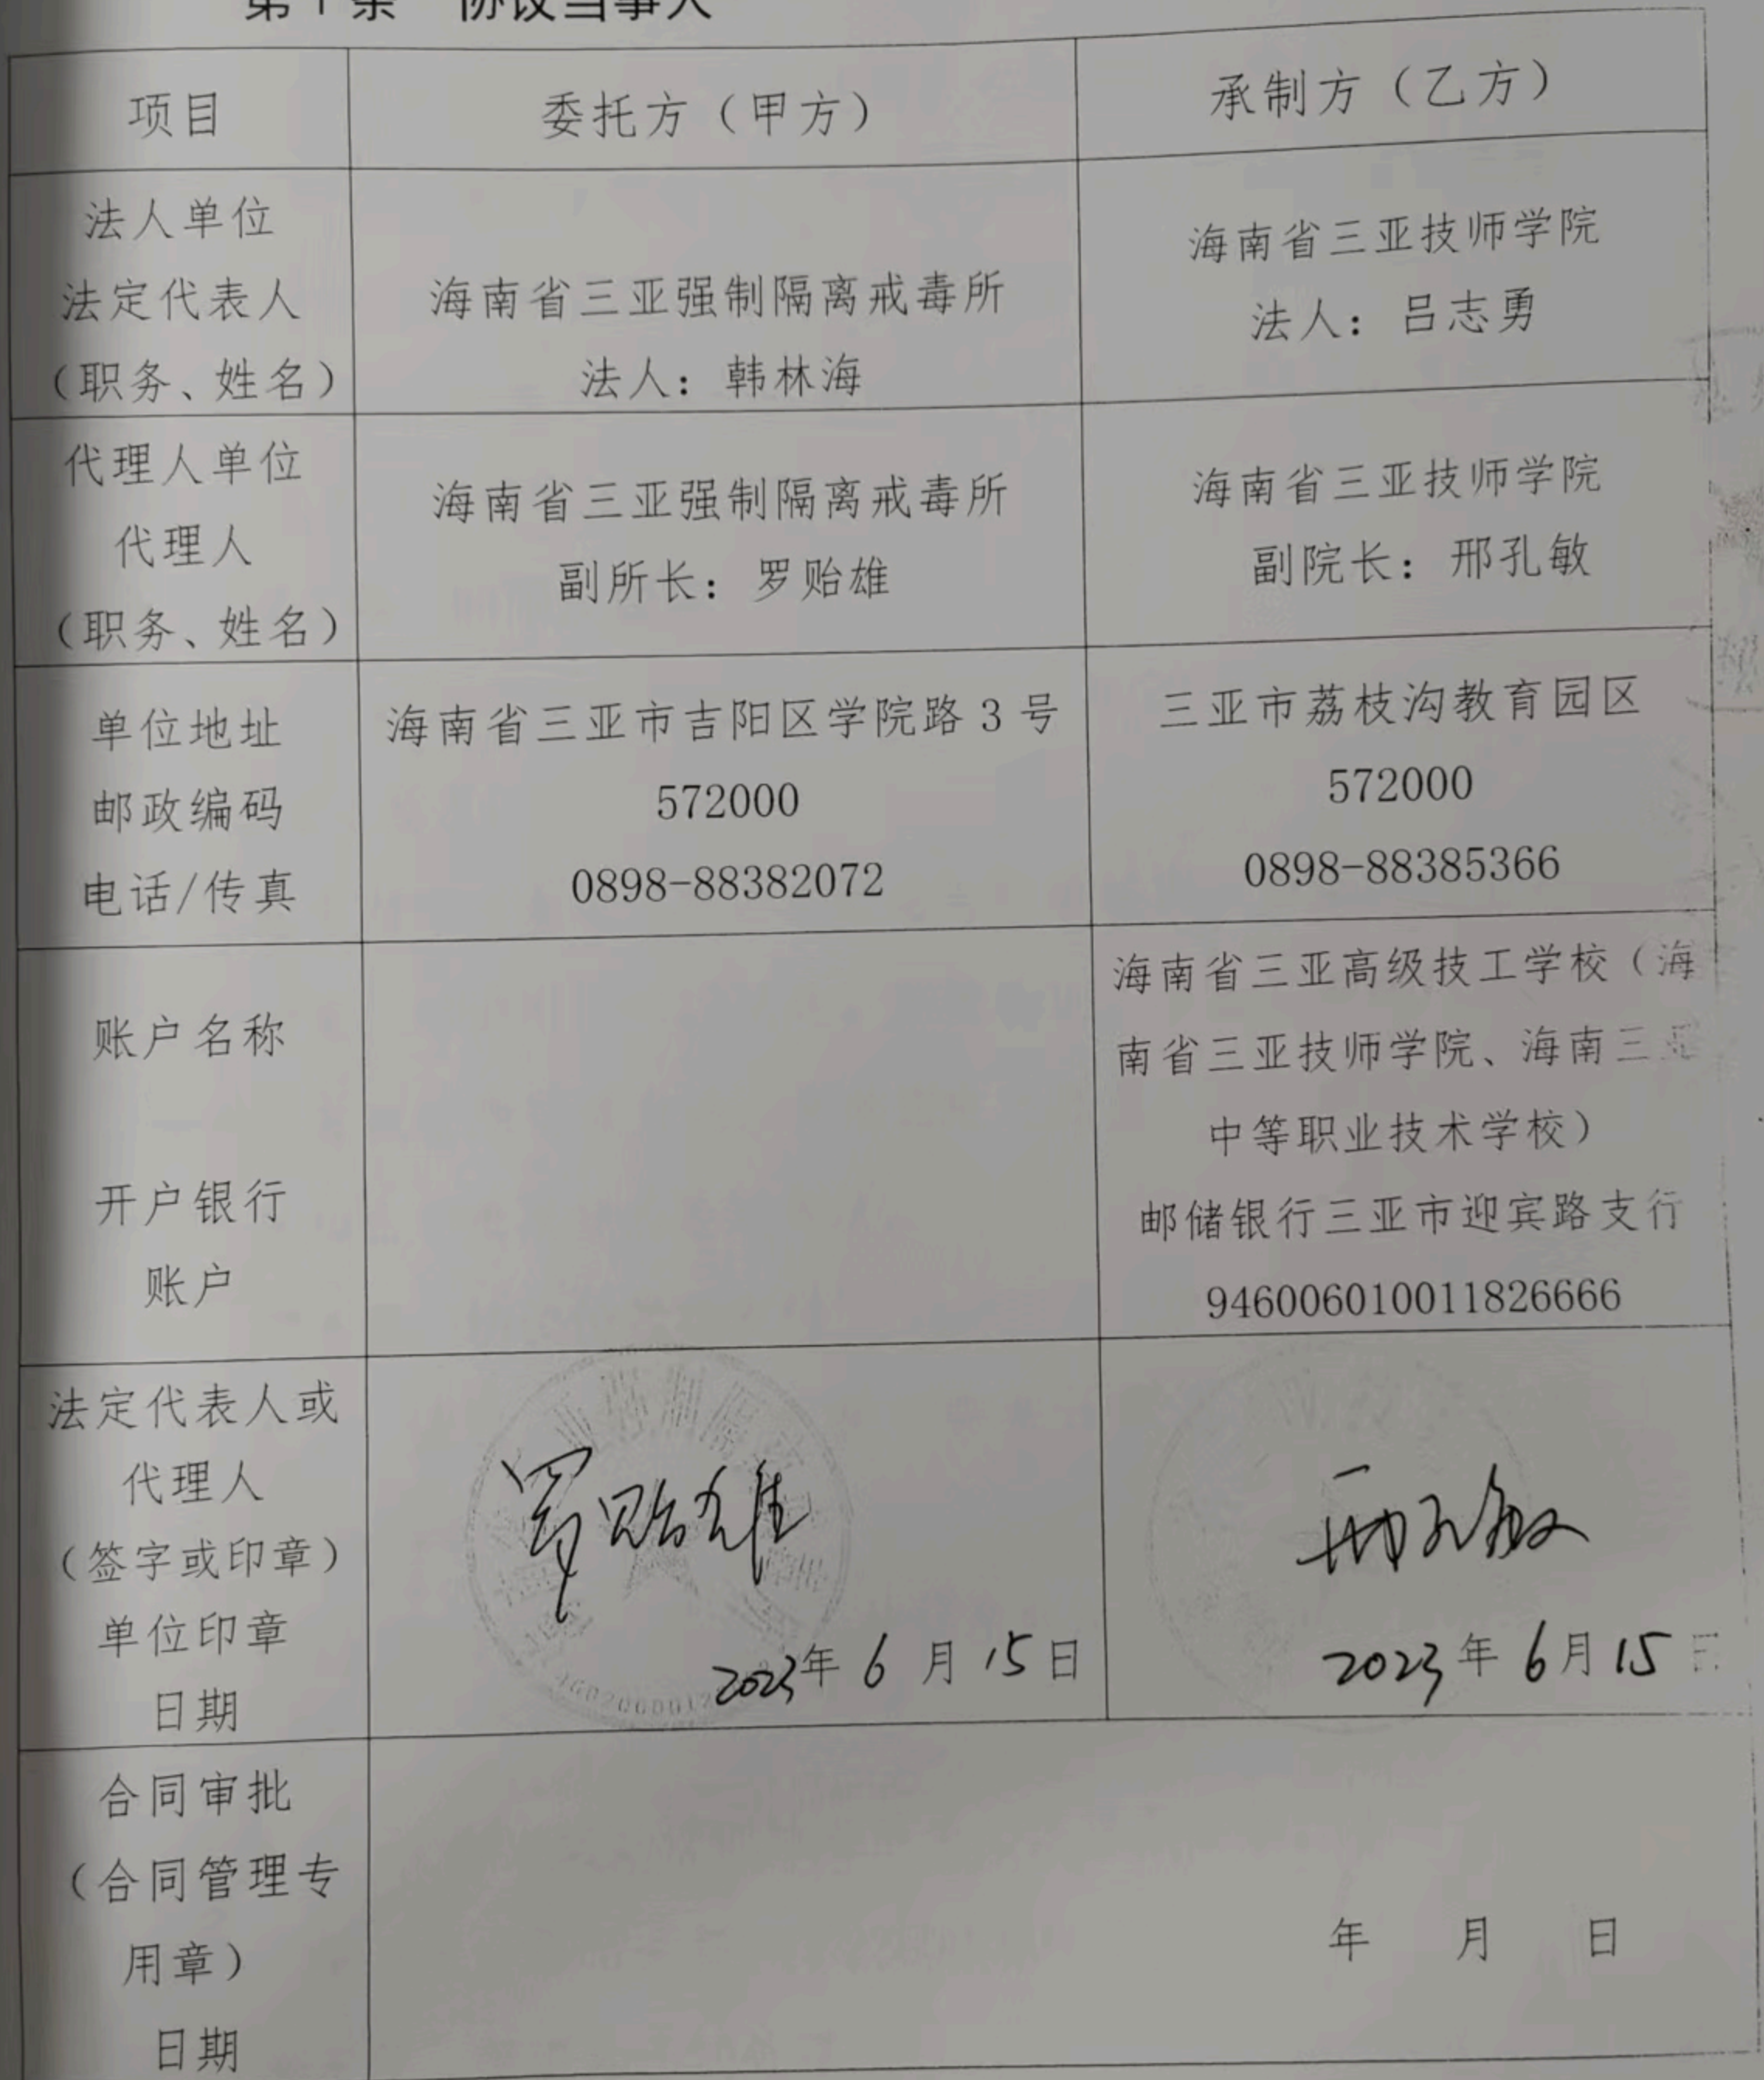 第1条 协议当事人
项目
委托方（甲方）
承制方（乙方）
法人单位
法定代表人
（职务、姓名）
海南省三亚强制隔离戒毒所
法人：韩林海
海南省三亚技师学院
法人：吕志勇
代理人单位
代理人
（职务、姓名）
海南省三亚强制隔离戒毒所
副所长：罗贻雄
海南省三亚技师学院
副院长：邢孔敏
单位地址
邮政编码
电话/传真
海南省三亚市吉阳区学院路3号
572000
0898-88382072
三亚市荔枝沟教育园区
572000
0898-88385366
账户名称
开户银行
账户
海南省三亚高级技工学校（海
南省三亚技师学院、海南三亚
中等职业技术学校）
邮储银行三亚市迎宾路支行
946006010011826666
法定代表人或
代理人
（签字或印章）
单位印章
日期
罗贻雄
2023年6月15日
邢孔敏
2023年6月15日
合同审批
（合同管理专
用章）
日期
年 月 日